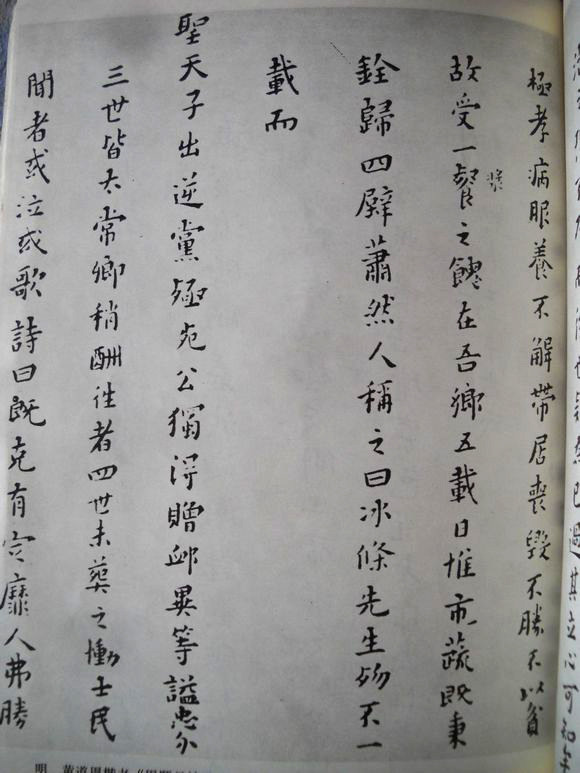 已過其立心可知
極孝病眼養不解帶居喪毀不勝不以貧
故受一餐之餽在吾鄉五載日惟市蔬既秉
銓歸四壁蕭然人稱之曰冰條先生物不一
載而
聖天子出逆黨殛死公獨淂贈卹異等諡忠介
三世皆太常卿稍酬往者四世未葬之慟士民
聞者或泣或歌詩曰既克有定靡人弗勝